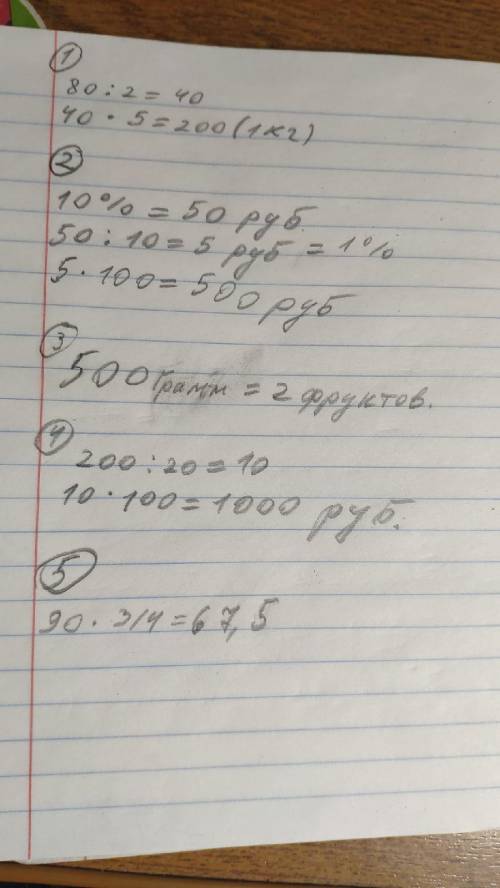 1
80 : 2 = 40
40 · 5 = 200 (1 кг)
2
10% = 50 руб.
50 : 10 = 5 руб = 1%
5 · 100 = 500 руб
3
500 грамм = 2 фруктов.
4
200 : 20 = 10
10 · 100 = 1000 руб.
5
90 · 3/4 = 67,5